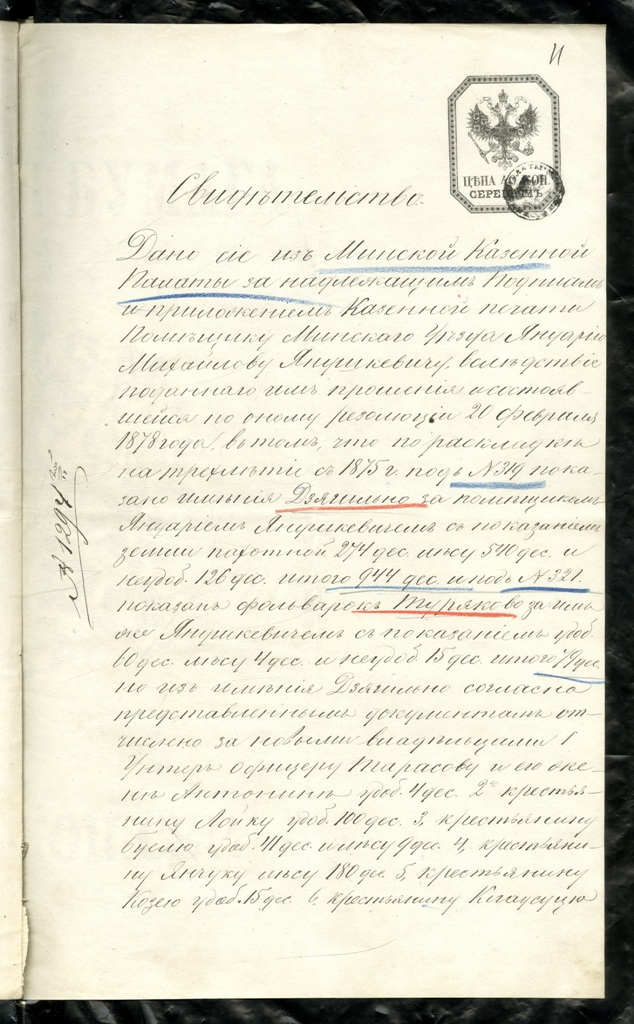 11
ЦѢНА 40 КОП.
СЕРЕБРОМЪ
Свидѣтельство.
Дано сіе изъ Минской Казенной
Палаты за надлежащимъ Подписомъ
и приложеніемъ Казенной печати
Помѣщику Минскаго Уѣзда Януарію
Михайлову Янушкевичу, вслѣдствіе
поданнаго имъ прошенія и состояв-
шейся по оному резолюціи 20 Февраля
1878 года, въ томъ, что по раскладкѣ
на трехлѣтіе съ 1875 г. подъ N 319 пока-
зано имѣнія Дзягильно за помѣщикомъ
Януаріемъ Янушкевичемъ съ показаніемъ
земли пахотной 274 дес. лѣсу 540 дес. и
неудоб. 126 дес. итого 944 дес. и подъ N 321.
показанъ фольварокъ Туряково за имъ
же Янушкевичемъ съ показаніемъ удоб.
60 дес. лѣсу 4 дес. и неудоб. 15 дес. итого 79 дес.
но изъ имѣнія Дзягильно согласно
представленнымъ документамъ от-
числено за новыми владѣльцами 1
Унтеръ офицеру Тарасову и его же-
нѣ Антонинѣ удоб. 4 дес. 2, крестья-
нину Лойку удоб. 100 дес. 3, крестьянину
Буслю удоб. 41 дес. и лѣсу 9 дес. 4, крестьяни-
ну Янчуку лѣсу 180 дес. 5, крестьянину
Козею удоб. 15 дес. 6, крестьянину
N 1294